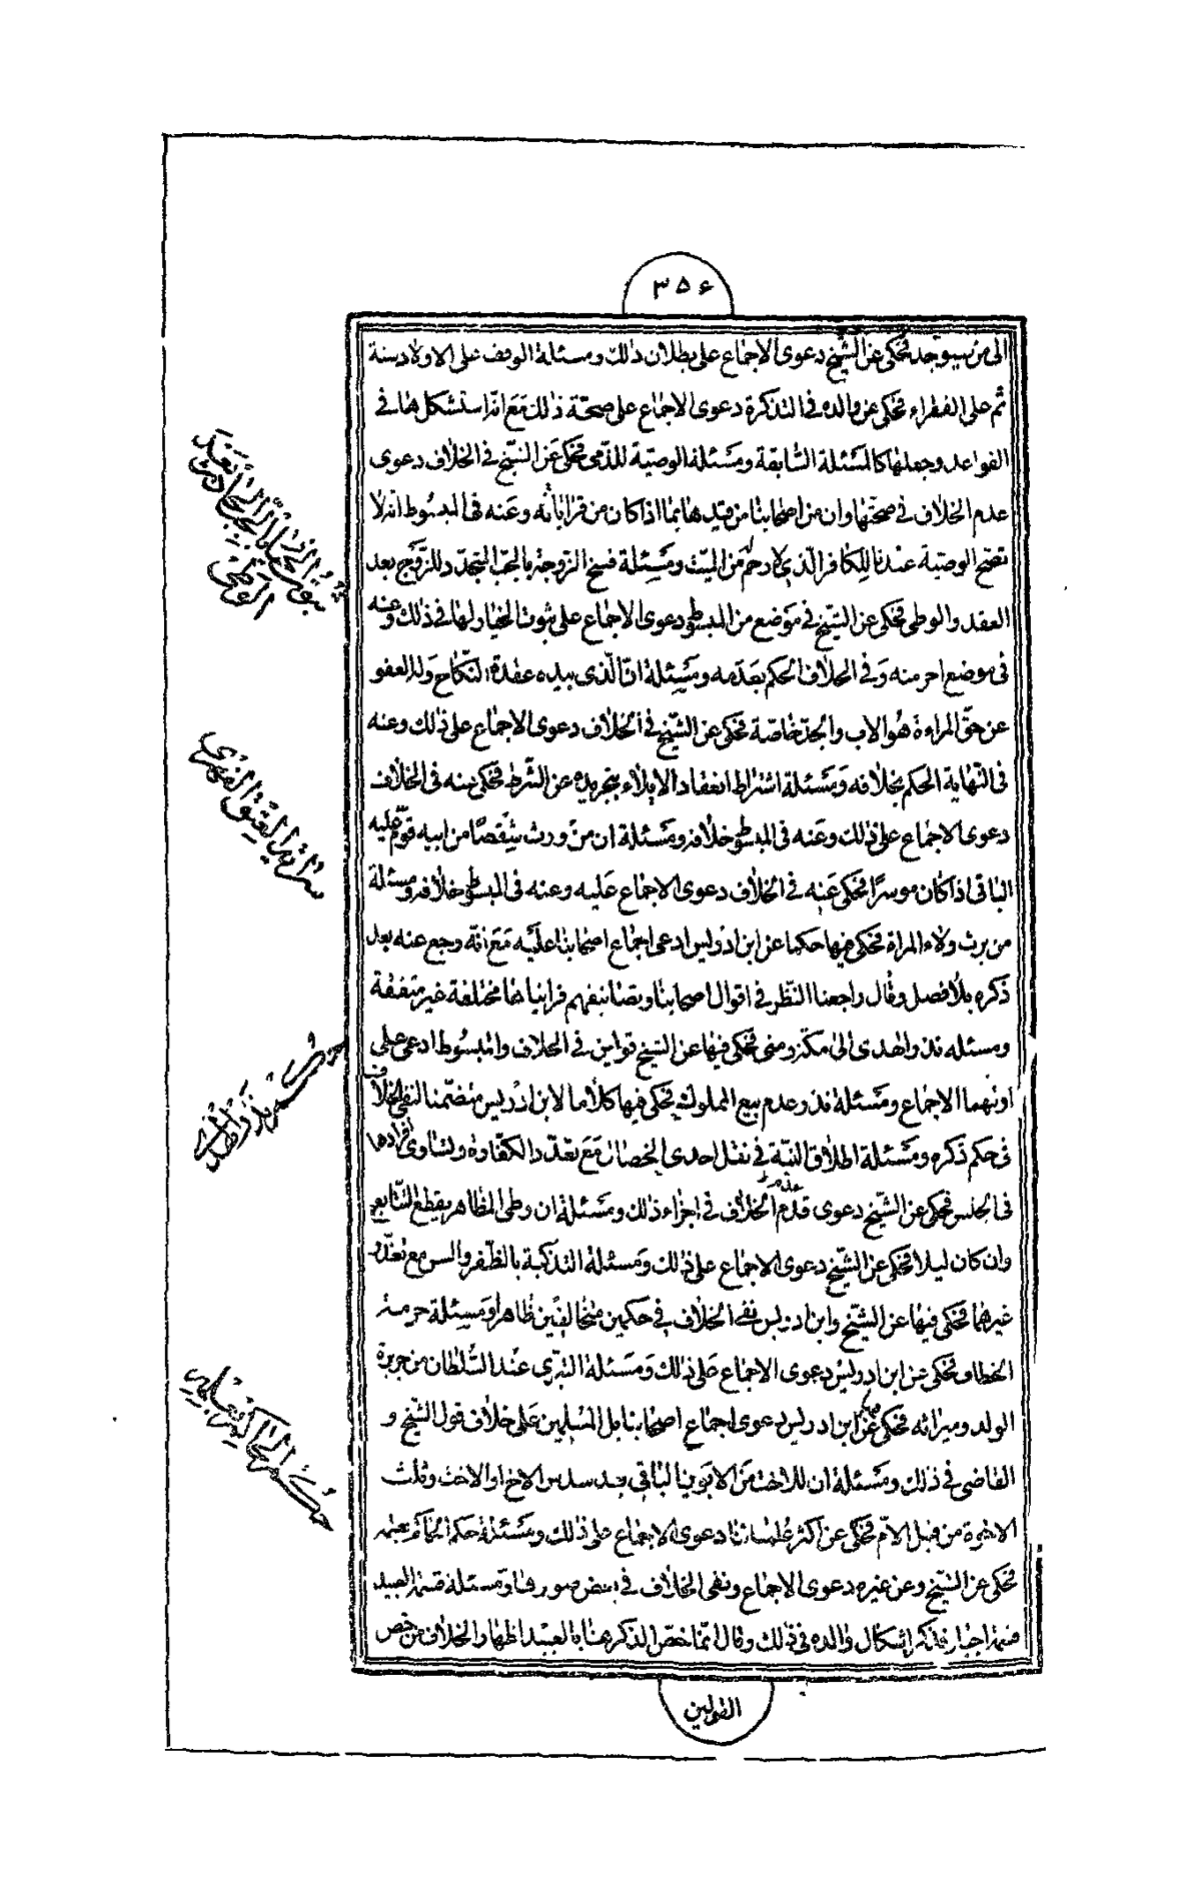 ٣٥۶
الى من سيوجد فحكى عن الشيخ دعوى الاجماع على بطلان ذلك ومسئلة الوقف على الاولاد سنة
ثم على الفقراء فحكى عن والده فى التذكرة دعوى الاجماع على صحّة ذلك مَعَ انه استشكل هنا فى
القواعد وجعلها كالمسئلة السّابقة ومَسَئلة الوصيّة للذمى فحكى عَن الشيخ فى الخلاف دعوى
عدم الخلاف فى صحّتها وان من اصحابنا من قيدها بما اذا كان من قراباته وعَنه فى المبسُوط انه لا
تصح الوصيّة عندنا للكافر الّذى لا رحم له من الميّت ومسئلة فسخ الزوجة بالجبّ المتجدّد للزّوج بعد
العقد والوطى فحكى عن الشيخ فى مَوضع من المبسوط دعوى الاجماع على ثبوت الخيار لها فى ذلك وعنه
فى موضع اخر منه وَفى الخلاف الحكم بعَدمه ومسئلة انّ الّذى بيده عقدة النّكاح وله العفو
عن حقّ المراءة هُو الاب والجدّ خاصّة فحكى عن الشّيخ فى الخلاف دعوى الاجماع على ذلك وعنه
فى النّهاية الحكم بخلافه وَمَسَئلة اشتراط انعقاد الايلاء بتجريده عن الشّرط فحكى عنه فى الخلاف
دعوى الاجماع على ذلك وعَنه فى المبسوط خلافه ومَسئلة ان من ورث شِقصًا من ابيه قوّم عليه
الباقى اذا كان موسرًا فحكى عَنه فى الخلاف دعوى الاجماع عَليه وعنه فى المبسوط خلافه ومسئلة
من يرث ولاء المراة فحكى فيها حكما عن ابن ادريس ادعى اجماع اصحابنا عليه مَعَ انّه رجع عنه بعد
ذكره بلا فصل وقال راجعنا النّظر فى اقوال اصحابنا وتصانيفهم فرايناها مختلفة غير متفقة
ومسئله نذر الهدى الى مكّة ومنى فحكى فيها عن الشيخ قولين فى الخلاف والمبسُوط ادعى على
اولهما الاجماع ومَسَئلة نذر عدم بيع المملوك فحكى فيها كلاما لابن ادريس متضمنا لنفى الخلاف
فى حكم ذكره ومَسَئلة اطلاق النيّة فى نفل احدى الخصال مَعَ تعدّد الكفّارة وتساوى افرادها
فى الجنس فحكى عن الشّيخ دعوى عدم الخلاف فى اجزاء ذلك ومَسَئلة ان وطى المظاهر يقطع التّتابع
وان كان ليلا فحكى عن الشّيخ دعوى الاجماع على ذلك ومَسئلة التذكية بالظّفر والسن مع تعذّر
غيرهما فحكى فيها عن الشيخ وابن ادريس نفى الخلاف فى حكمين متخالفين ظاهرا ومَسئلة حرمة
الخطاف فحكى عن ابن ادريس دعوى الاجماع على ذلك وَمَسئلة التبرى عند السّلطان من جريرة
الولد وميراثه فحكى عن ابن ادريس دعوى اجماع اصحابنا بل المسلمين عَلى خلاف قول الشيخ و
القاضى فى ذلك ومَسَئلة ان للاخت من الابوين الباقى بعد سدس الاخ او الاخت وثلث
الاخوة من قبل الام فحكى عن اكثر علمائنا دعوى الاجماع على ذلك ومَسئلة حكم الحاكم بعلمه
فحكى عن الشيخ وعن غيره دعوى الاجماع ونفى الخلاف فى بعض صورها ومَسئلة قسمة العبيد
قسمة اجبار فذكر اشكال والده فى ذلك وقال انّما خصّ الذكر هنا بالعبيد لظهار الخلاف من خصّ
القولين
ثبوت الخيار للمراة بالجب المتجدد بعد
الوطى
سراية العتق القهرى
حكم نذر الهدى
حكم الحاكم بعلمه